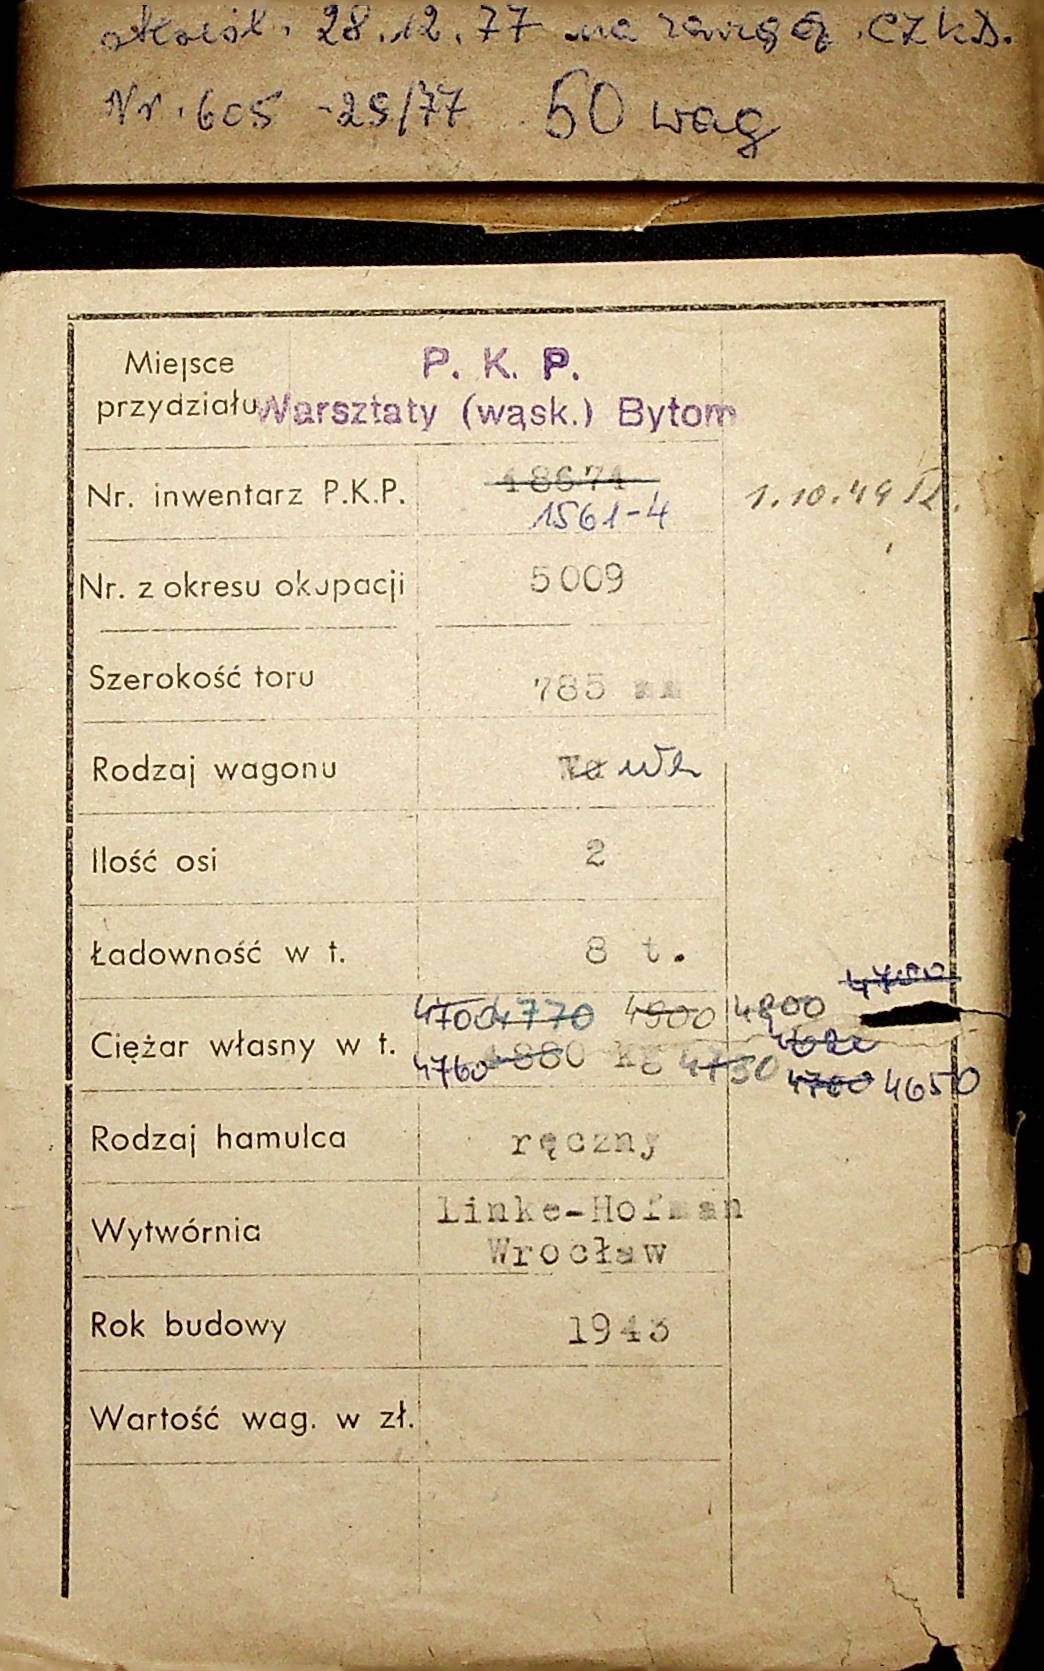 28.12.77 na CZKD.
Nr. 605 -29/77 50 wag
Miejsce przydziału P. K. P.
Warsztaty (wąsk.) Bytom
Nr. inwentarz P.K.P. 18671
1561-4 1.10.49
Nr. z okresu okupacji 5009
Szerokość toru 785 mm
Rodzaj wagonu
Ilość osi 2
Ładowność w t. 8 t.
4780
4700 4770 4900 4800
Ciężar własny w t. 4760 4880 kg 4730
4700 4650
Rodzaj hamulca ręczny
Wytwórnia Linke-Hofman
Wrocław
Rok budowy 1943
Wartość wag. w zł.